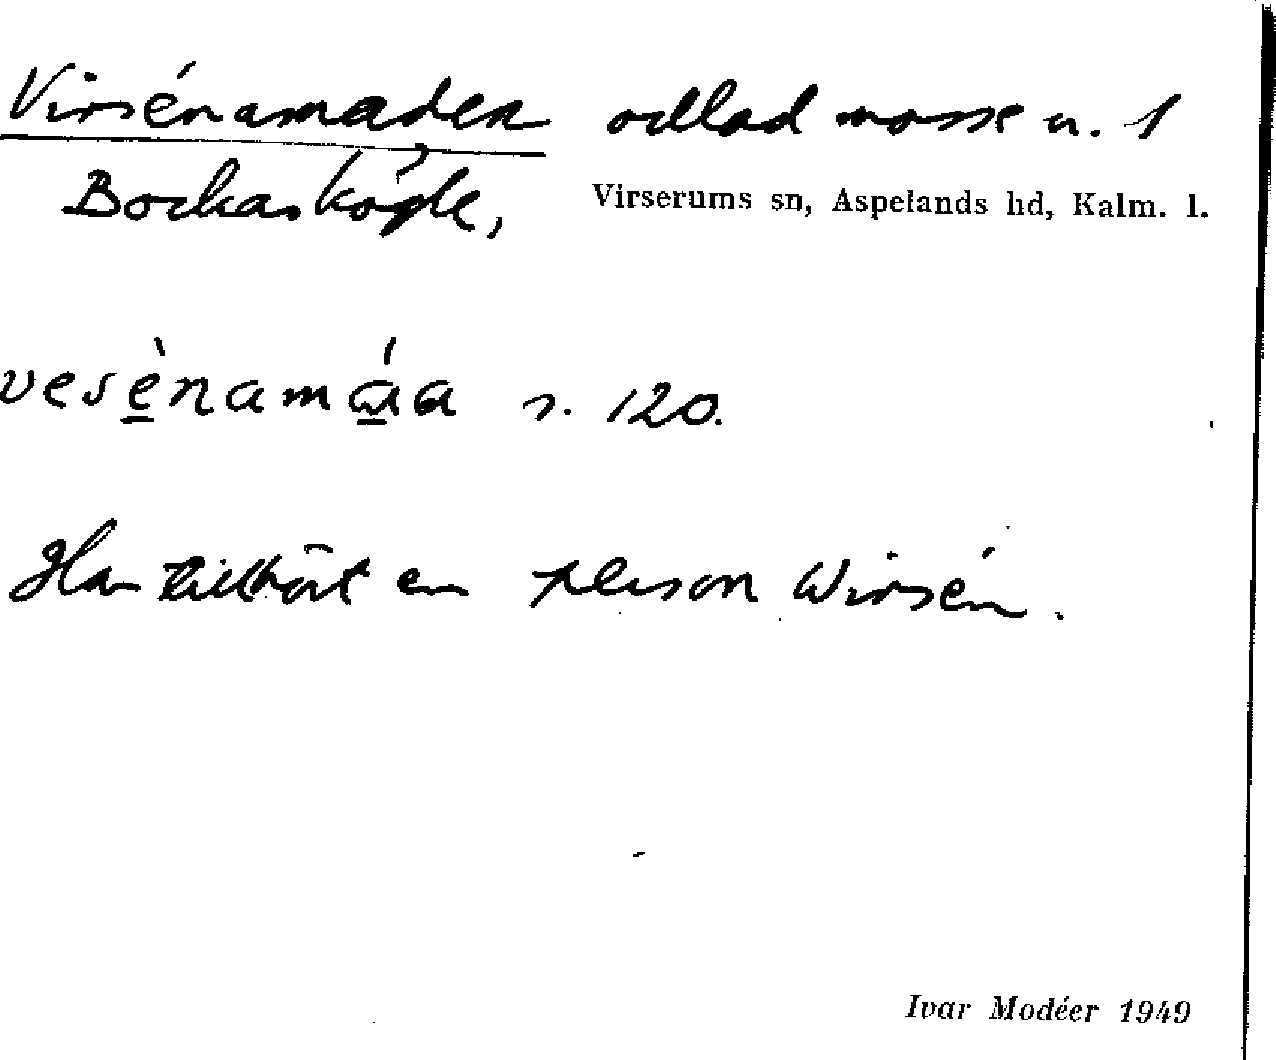 Virsénamaden odlad mosse n. 1
Bockaskögle, Virserums sn, Aspelands hd, Kalm. l.
vesènamáa s. 120.
Har tillhört en person Wirsén.
Ivar Modéer 1949